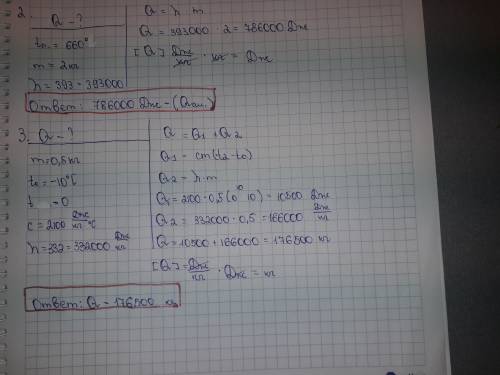 2. Q - ?
tп. = 660°
m = 2кг
λ = 393 = 393000
Q = λ · m
Q = 393000 · 2 = 786000 Дж
[Q] Дж/кг · кг = Дж
Ответ: 786000 Дж - (Qал.)
3. Q - ?
m = 0,5 кг
t₀ = -10°C
t = 0
c = 2100 Дж/кг °C
λ = 332 = 332000 Дж/кг
Q = Q1 + Q2
Q1 = cm(t2 - t0)
Q2 = λ · m
Q1 = 2100 · 0,5 (0 10) = 10500 Дж
Q2 = 332000 · 0,5 = 166000 Дж/кг
Q = 10500 + 166000 = 176500 кг
[Q] = Дж/кг · Дж = кг
Ответ: Q - 176500